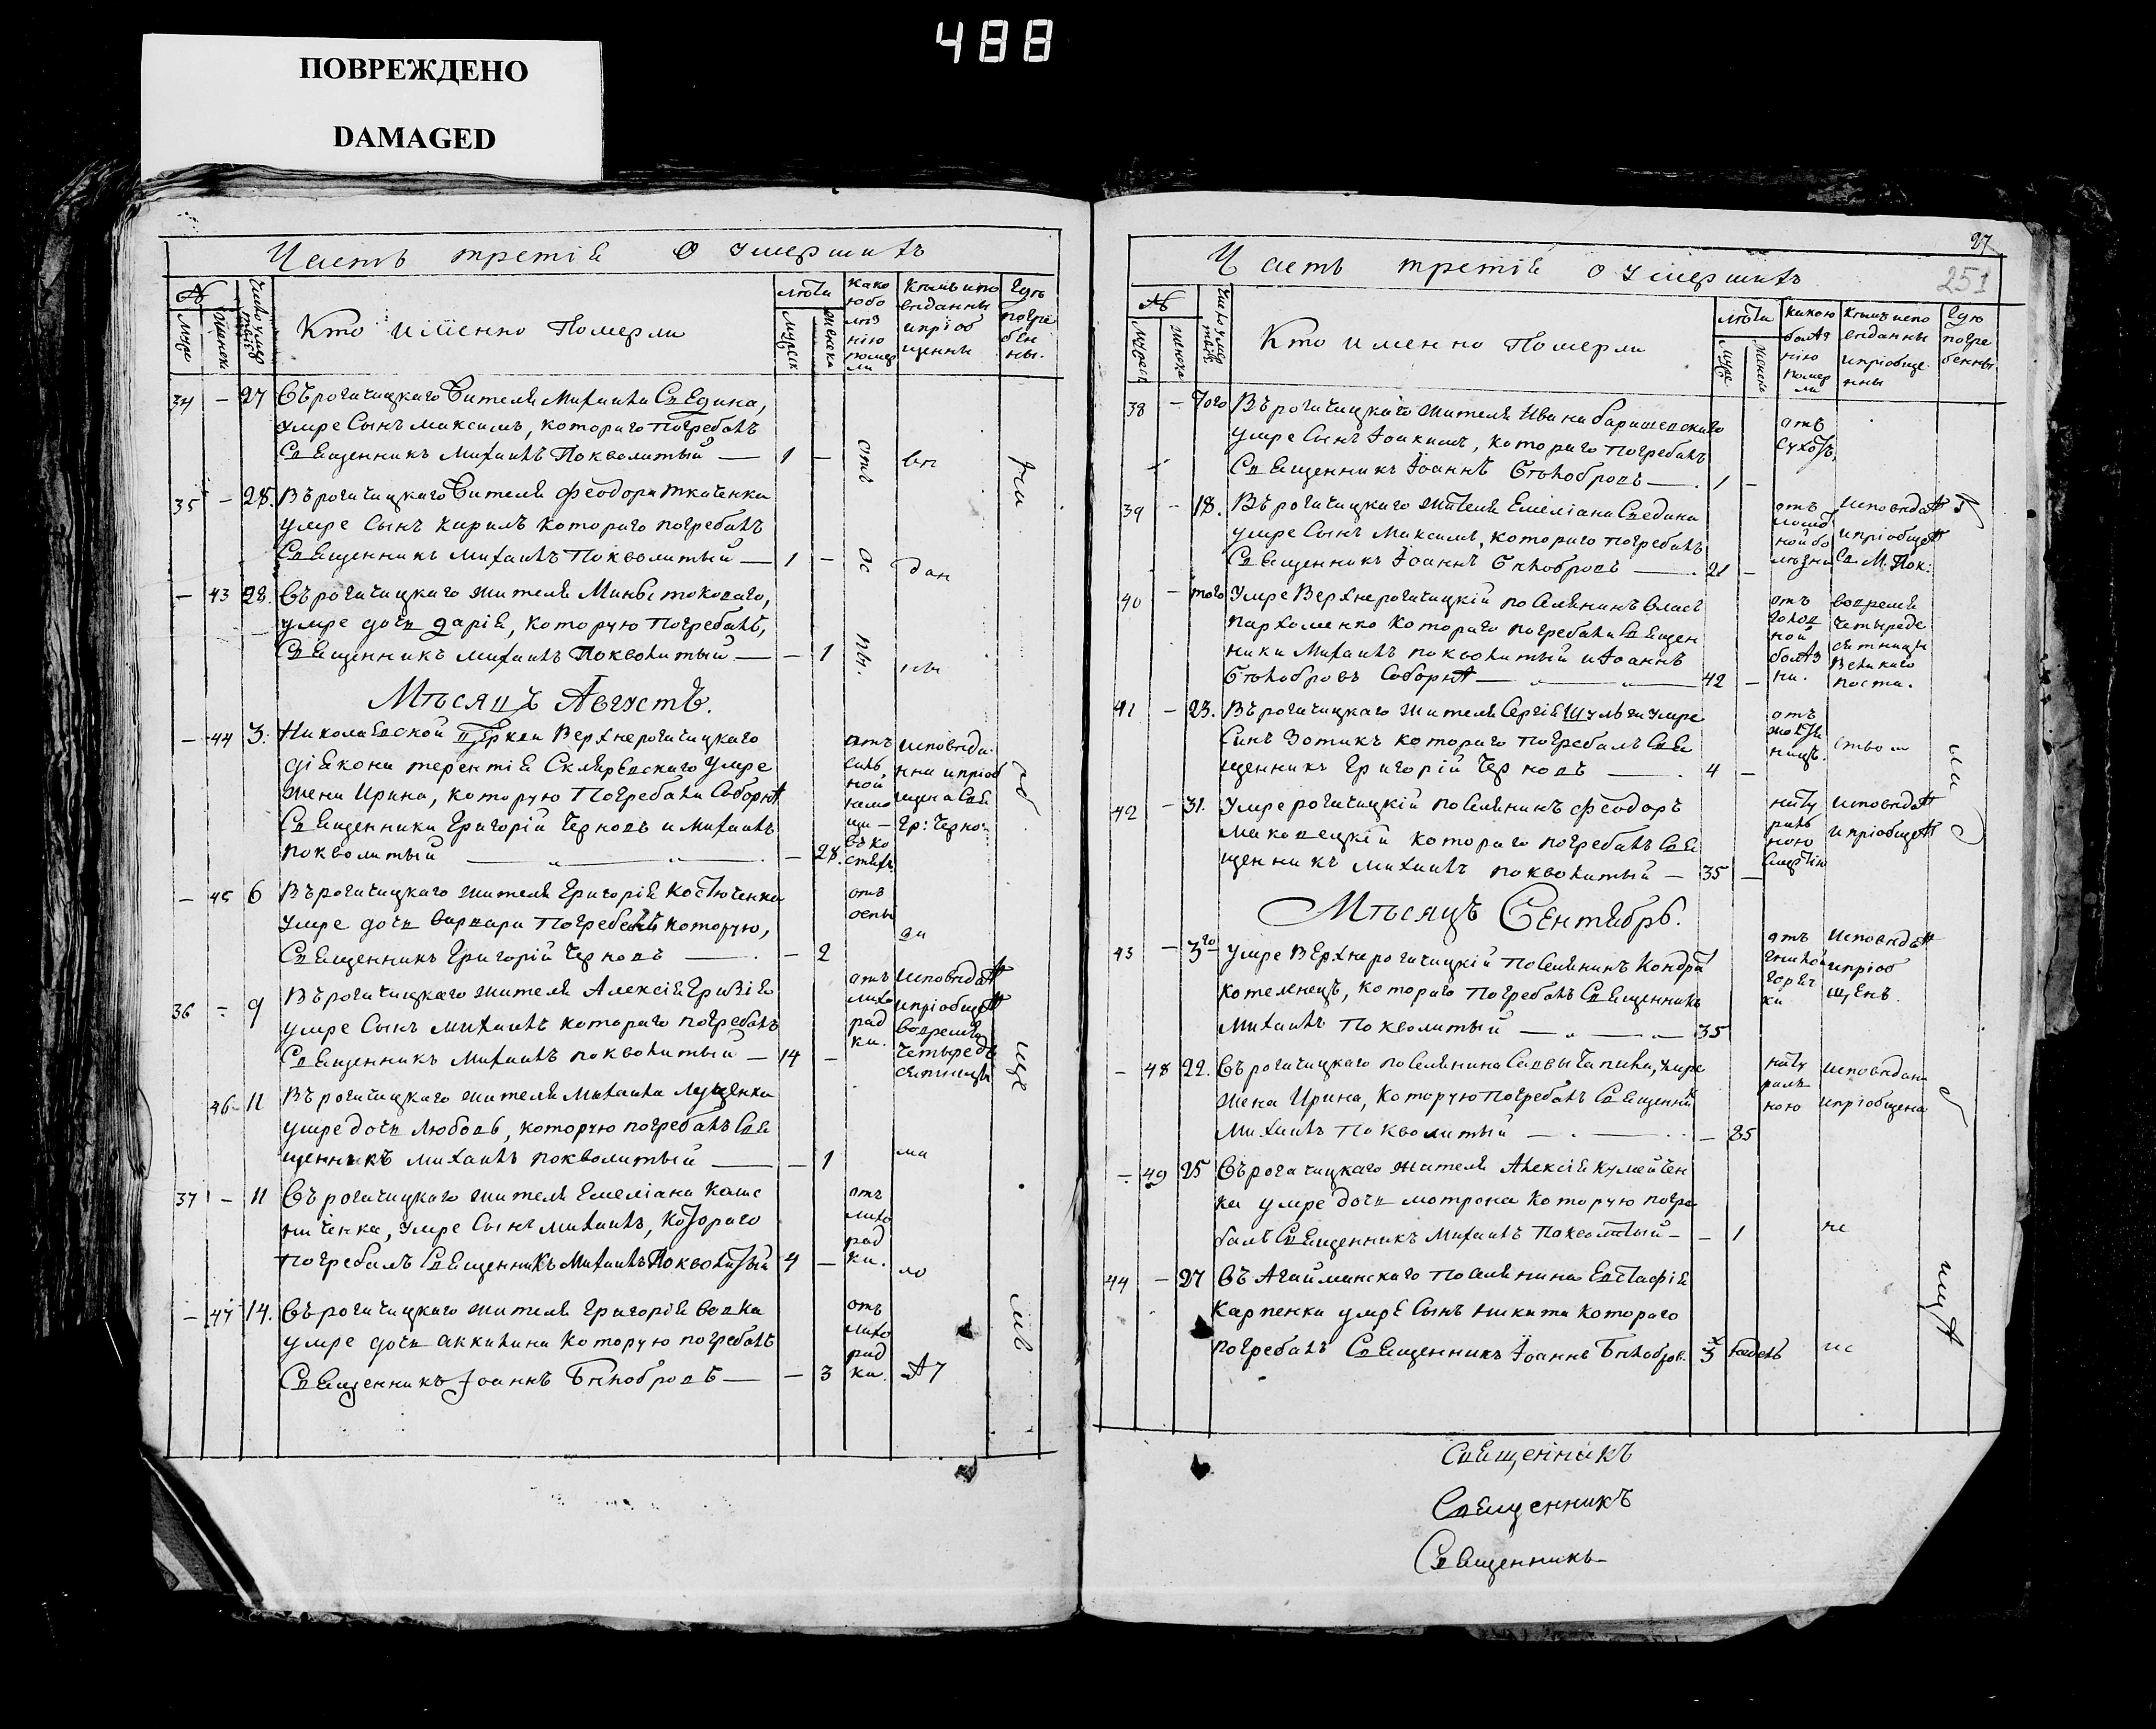 488
ПОВРЕЖДЕНО
DAMAGED
Часть третія О умершихъ
№
Кто именно Померли
лѣта
Како
юбо
лѣз
нію
помер
ли
Кѣмъ испо
вѣданны
и пріоб
щенны
Гдѣ
погре
бен
ны.
34 – 27 Въ рогачицкаго жителя Михаила Сведина,
умре Сынъ Максимъ, котораго погребалъ
Священникъ Михаилъ Покволитый — 1 –
35 – 28. Въ рогачицкаго жителя Феодора Ткаченка
умре Сынъ Кирилъ котораго погребалъ
Священникъ Михаилъ Покволитый — 1 –
отъ ос пы.
– 43 28. Въ рогачицкаго жителя
умре дочь Дарія, которую погребалъ,
Священникъ Михаилъ Покволитый — – 1
Мѣсяцъ Августъ.
– 44 3. Николаевской Церкви Верхнерогачицкаго
діякона Терентія Скляревского умре
жена Ирина, которую Погребали Соборнѣ
Священники Григорій Черновъ и Михаилъ
Покволитый — – 28.
исповѣда
на и пріоб
щена Свя
Гр: Черно:
– 45 6 Въ рогачицкаго жителя Григорія Костюченка
умре дочь Варвара Погребалъ которую,
Священникъ Григорій Черновъ — – 2
отъ
оспы
36 – 9 Въ рогачицкаго жителя Алексія
умре Сынъ Михаилъ котораго погребалъ
Священникъ Михаилъ Покволитый — 14 –
отъ
лихо
рад
ки.
исповѣданъ
и пріобщенъ
вовремя
четыреде
сятницы
46 – 11 Въ рогачицкаго жителя Михаила Луценка
умре дочь Любовь, которую погребалъ Свя
щенникъ Михаилъ Покволитый — – 1
37 – 11 Въ рогачицкаго жителя Емеліана
умре Сынъ Михаилъ, Котораго
погребалъ Священникъ Михаилъ Покволитый 4 –
отъ
лихо
рад
ки.
– 47 14. Въ рогачицкаго жителя Григорія
умре дочь Аккилина Которую погребалъ
Священникъ Іоаннъ Бѣлобровъ — – 3
отъ
лихо
рад
ки.
27
251
Часть третія о умершихъ
№
Кто именно Померли
лѣта
Какою
болѣз
нію
Помер
ли
Кѣмъ испо
вѣданны
и пріобще
нны
Гдѣ
погре
бенны
38 – Того Въ рогачицкаго жителя Ивана Баришевскаго
умре Сынъ Іоакимъ, котораго погребалъ
Священникъ Іоаннъ Бѣлобровъ — 1 –
отъ
39 – 18. Въ рогачицкаго жителя Емеліана Сведина
умре Сынъ Максимъ, котораго погребалъ
Священникъ Іоаннъ Бѣлобровъ — 21 –
исповѣданъ
и пріобщенъ
Св. М. Пок:
40 – того Умре Верхнерогачицкій поселянинъ Власъ
Пархоменко котораго погребали Священ
ники Михаилъ Покволитый и Іоаннъ
Бѣлобровъ Соборнѣ — 42 –
отъ
вовремя
четыреде
сятницы
Великаго
поста.
41 – 23. Въ рогачицкаго жителя Сергія Шульги умре
Синъ Зотикъ котораго погребалъ Свя
щенникъ Григорій Черновъ — 4 –
отъ
42 – 31. Умре рогачицкій поселянинъ Феодоръ
Маковецкій котораго погребалъ Свя
щенникъ Михаилъ Покволитый — 35 –
нату
раль
ною
смертію
исповѣданъ
и пріобщенъ
Мѣсяцъ Сентябрь.
43 – 3го Умре Верхнерогачицкій Поселянинъ Кондратъ
Котелнецъ, котораго Погребалъ Священникъ
Михаилъ Покволитый — 35
отъ
гнилой
горяч
ки
Исповѣданъ
и пріоб
щенъ.
– 48 22. Въ рогачицкаго поселянина Саввы Чапила, умре
жена Ирина, Которую погребалъ Священникъ
Михаилъ Покволитый — – 85
нату
раль
ною
исповѣдана
и пріобщена
– 49 25 Въ рогачицкаго жителя Алексія Кумейчен
ка умре дочь Мотрона Которую погре
балъ Священникъ Михаилъ Покволитый – – 1
44 – 27 Въ Агайманскаго поселянина Евстафія
Карпенка умре Сынъ Никита котораго
погребалъ Священникъ Іоаннъ Бѣлобров. 3
Священникъ
Священникъ
Священникъ